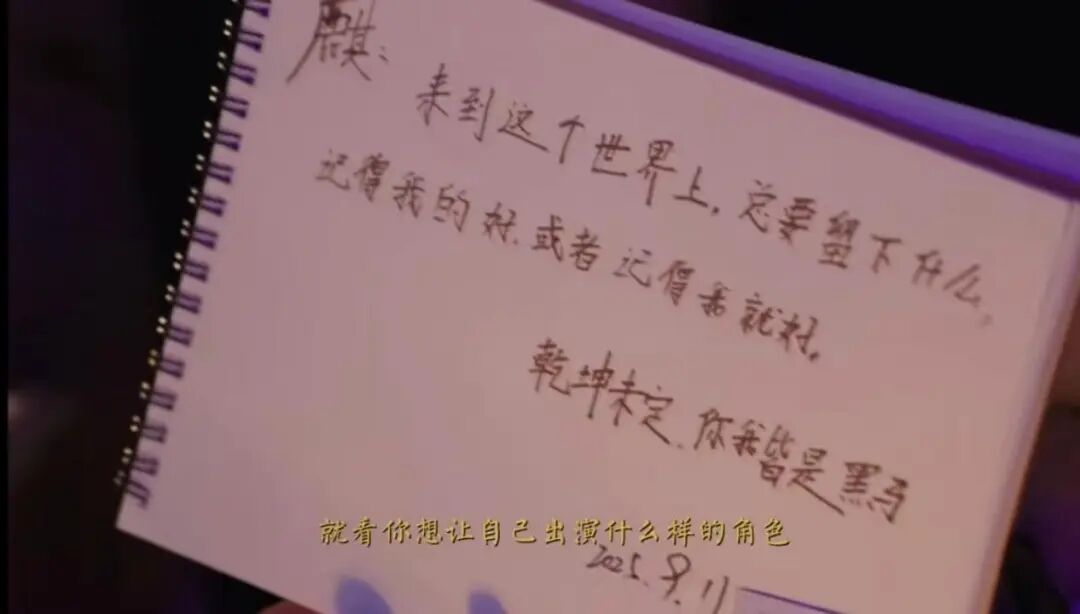 麒：
来到这个世界上，总要留下什么，
记得我的好、或者记得我就好。
乾坤未定、你我皆是黑马
就看你想让自己出演什么样的角色
2025.9.11